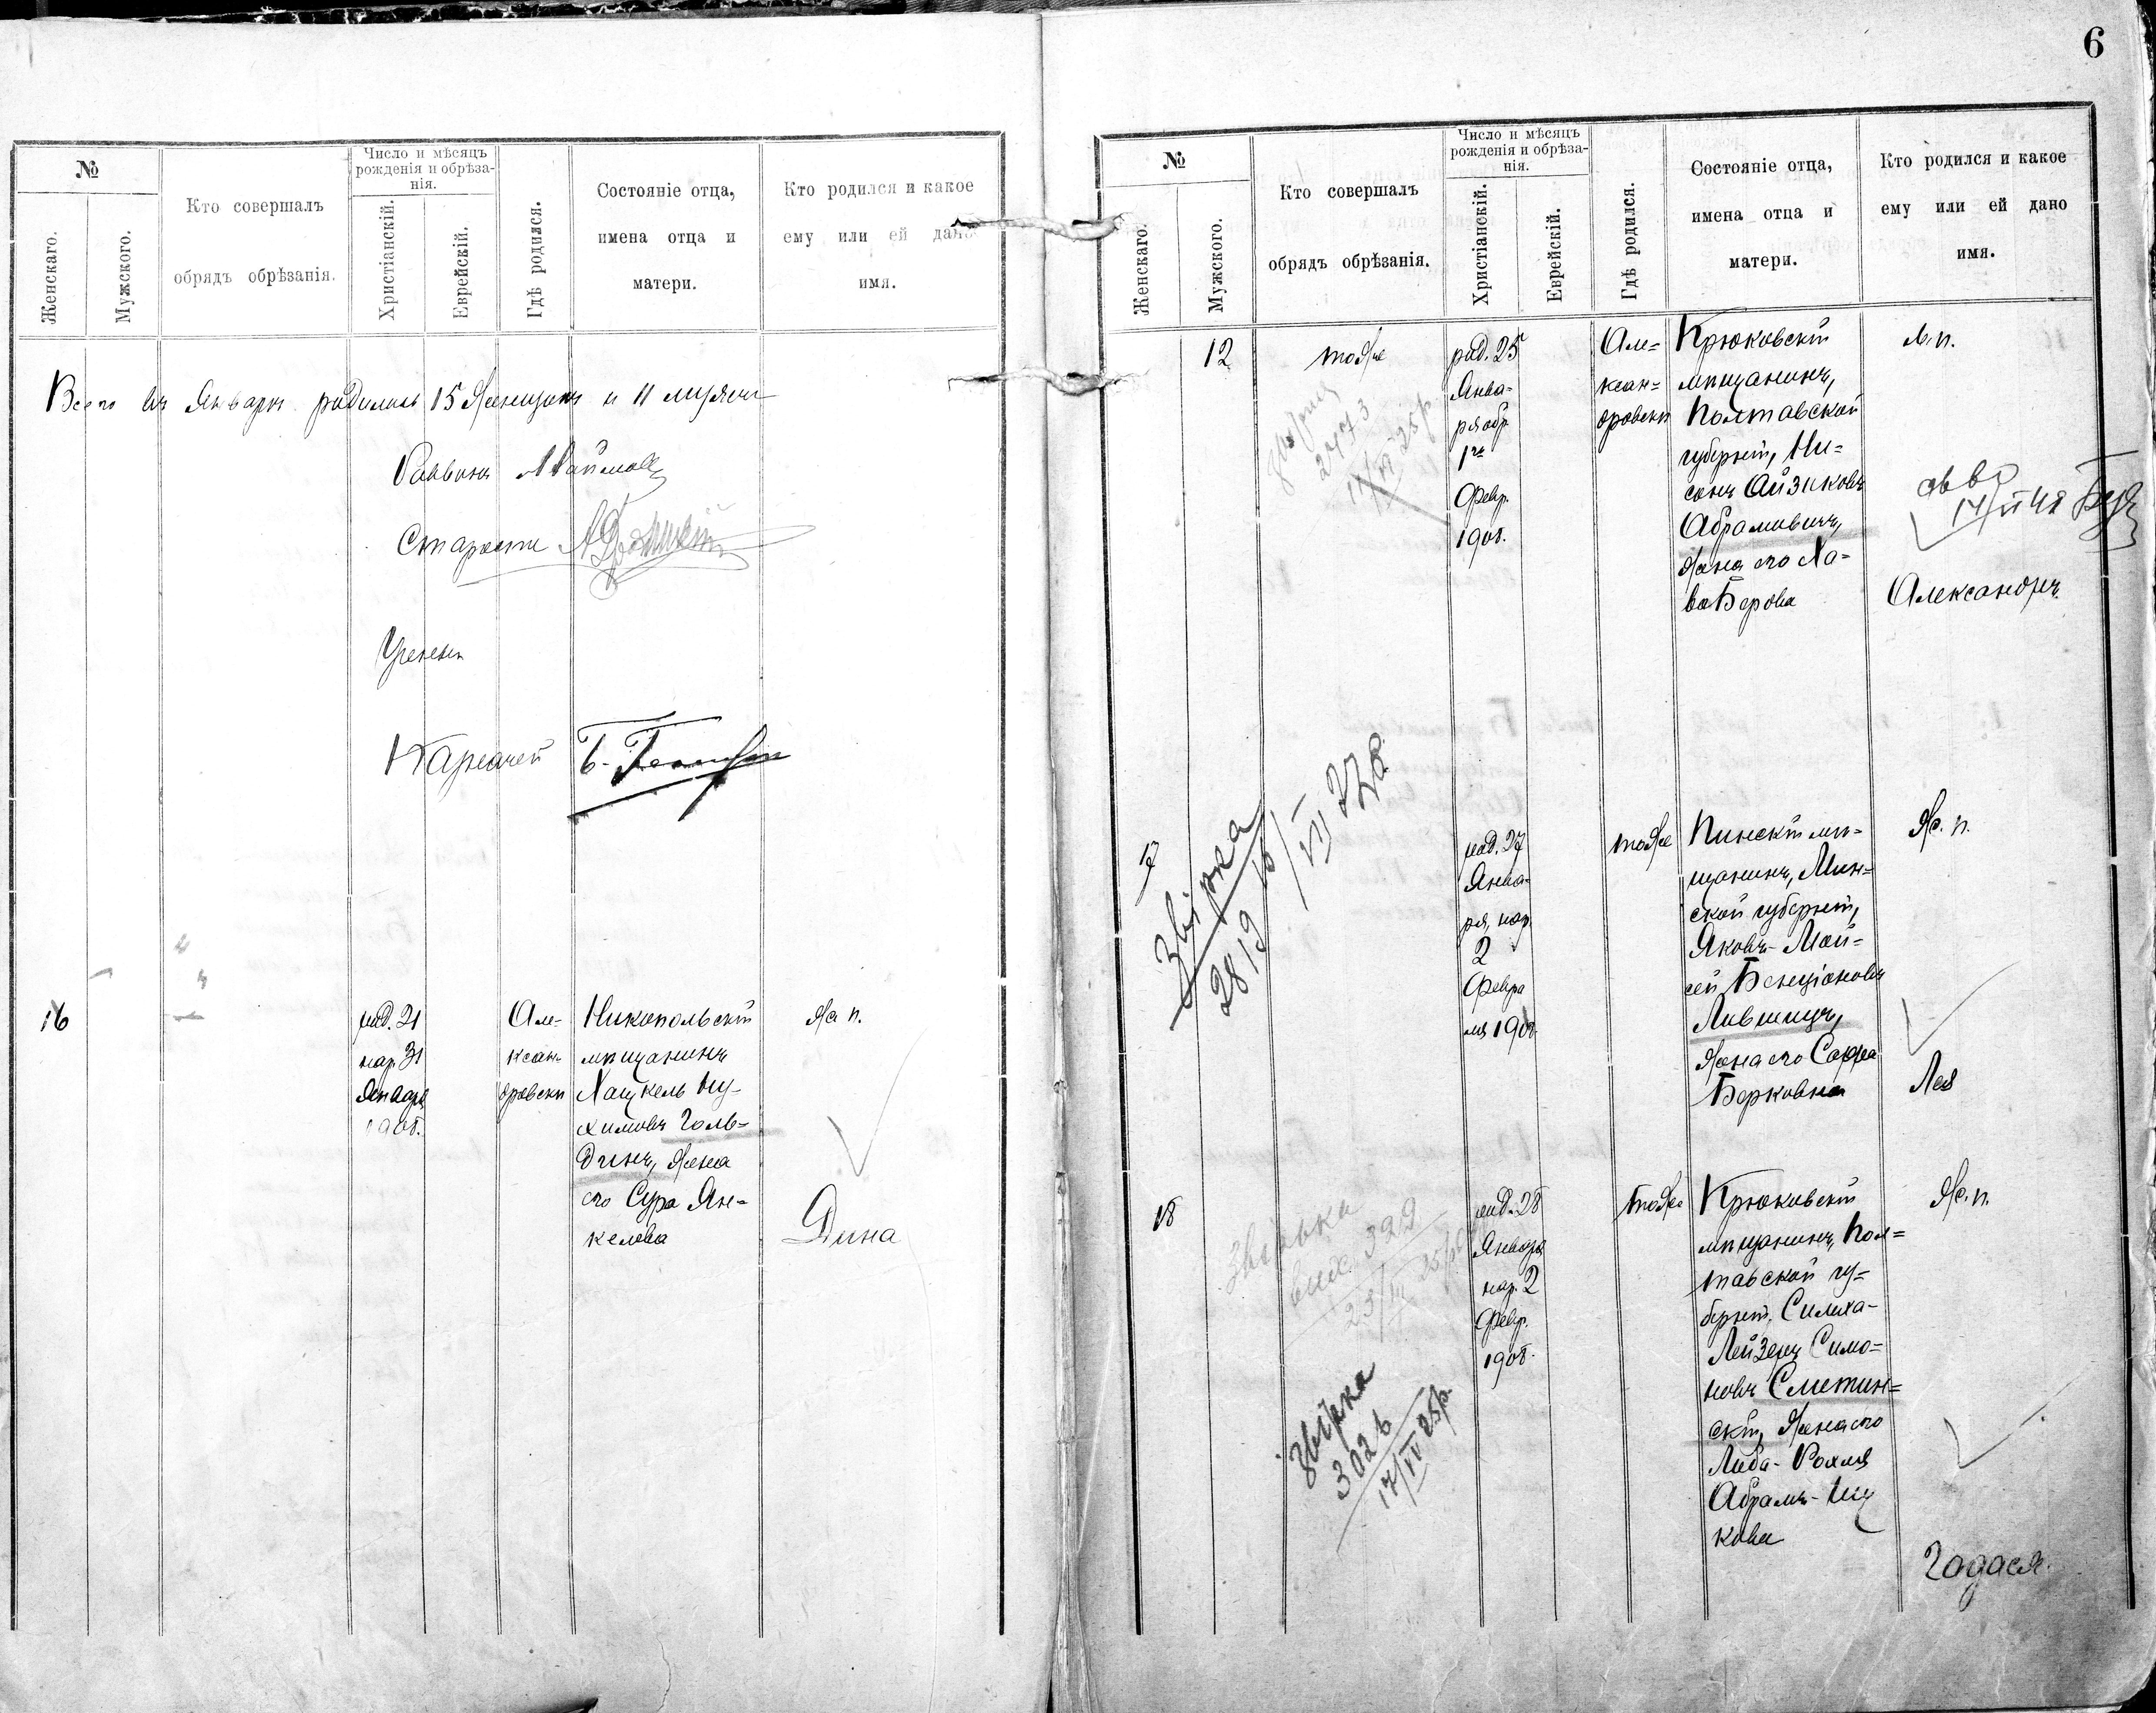 6
№
Женскаго.
Мужского.
Кто совершалъ
обрядъ обрѣзанія.
Число и мѣсяцъ
рожденія и обрѣза-
нія.
Христіанскій.
Еврейскій.
Гдѣ родился.
Состояніе отца,
имена отца и
матери.
Кто родился и какое
ему или ей дано
имя.
Всего въ Январѣ родилось 15 женщинъ и 11 мужчинъ
Раввинъ
Староста
Ученый
Казначей
16
род. 21
нар. 31
Января
1908.
Але-
ксан-
дровскъ
Никопольскій
мѣщанинъ
Хацкель Ну-
химовъ Голь-
динъ, жена
его Сура Ян-
келева
ж. п.
Дина
№
Женскаго.
Мужского.
Кто совершалъ
обрядъ обрѣзанія.
Число и мѣсяцъ
рожденія и обрѣза-
нія.
Христіанскій.
Еврейскій.
Гдѣ родился.
Состояніе отца,
имена отца и
матери.
Кто родился и какое
ему или ей дано
имя.
12
тоже
род. 25
Янва-
ря обр.
1го
Февр.
1908.
Але-
ксан-
дровскъ
Крюковскій
мѣщанинъ,
Полтавской
губерніи, Ни-
сонъ Айзиковъ
Абрамовичъ,
жена его Ха-
ва Берова
м. п.
Александръ
2473
17
Звірка
2819
род. 27
Янва-
ря, нар.
2
Февра
ля 1908.
тоже
Пинскій мѣ-
щанинъ, Мин-
ской губерніи,
Яковъ-Мой-
сей Бенціоновъ
Лившицъ,
жена его Сафра
Берковна
ж. п.
Лея
18
звірка
вих. 399
23/III 25р
Звірка
3026
17/IV 25р.
род. 28
Января
нар. 2
Февр.
1908.
тоже
Крюковскій
мѣщанинъ, Пол-
тавской гу-
берніи, Симха-
Лейзеръ Симо-
новъ Сметин-
скій, жена его
Либа-Рохля
Абрамъ-Иц
кова
ж. п.
Годася.